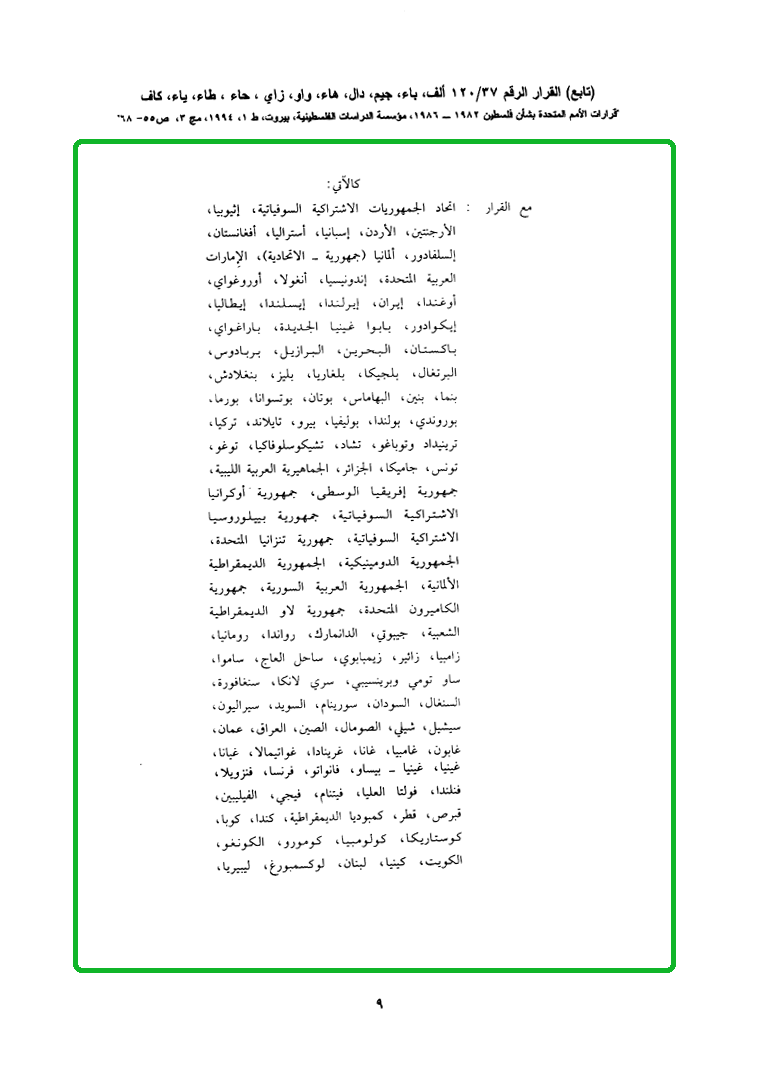 (تابع) القرار الرقم ١٢٠/٣٧ ألف، باء، جيم، دال، هاء، واو، زاي ، حاء ، طاء، ياء، كاف
قرارات الأمم المتحدة بشأن فلسطين ١٩٨٢ – ١٩٨٦، مؤسسة الدراسات الفلسطينية، بيروت، ط ١، ١٩٩٤، مج ٣، ص٥٥- ٦٨
كالآتي:
مع القرار : اتحاد الجمهوريات الاشتراكية السوفياتية، إثيوبيا،
الأرجنتين، الأردن، إسبانيا، أستراليا، أفغانستان،
إلسلفادور، ألمانيا (جمهورية ـ الاتحادية)، الإمارات
العربية المتحدة، إندونيسيا، أنغولا، أوروغواي،
أوغندا، إيران، إيرلندا، إيسلندا، إيطاليا،
إيكوادور، بابوا غينيا الجديدة، باراغواي،
باكستان، البحرين، البرازيل، بربادوس،
البرتغال، بلجيكا، بلغاريا، بليز، بنغلادش،
بنما، بنين، البهاماس، بوتان، بوتسوانا، بورما،
بوروندي، بولندا، بوليفيا، بيرو، تايلاند، تركيا،
ترينيداد وتوباغو، تشاد، تشيكوسلوفاكيا، توغو،
تونس، جاميكا، الجزائر، الجماهيرية العربية الليبية،
جمهورية إفريقيا الوسطى، جمهورية أوكرانيا
الاشتراكية السوفياتية، جمهورية بييلوروسيا
الاشتراكية السوفياتية، جمهورية تنزانيا المتحدة،
الجمهورية الدومينيكية، الجمهورية الديمقراطية
الألمانية، الجمهورية العربية السورية، جمهورية
الكاميرون المتحدة، جمهورية لاو الديمقراطية
الشعبية، جيبوتي، الدانمارك، رواندا، رومانيا،
زامبيا، زائير، زيمبابوي، ساحل العاج، ساموا،
ساو تومي وبرينسيبي، سري لانكا، سنغافورة،
السنغال، السودان، سورينام، السويد، سيراليون،
سيشيل، شيلي، الصومال، الصين، العراق، عمان،
غابون، غامبيا، غانا، غرينادا، غواتيمالا، غيانا،
غينيا، غينيا ـ بيساو، فانواتو، فرنسا، فنزويلا،
فنلندا، فولتا العليا، فيتنام، فيجي، الفيليبين،
قبرص، قطر، كمبوديا الديمقراطية، كندا، كوبا،
كوستاريكا، كولومبيا، كومورو، الكونغو،
الكويت، كينيا، لبنان، لوكسمبورغ، ليبيريا،
٩